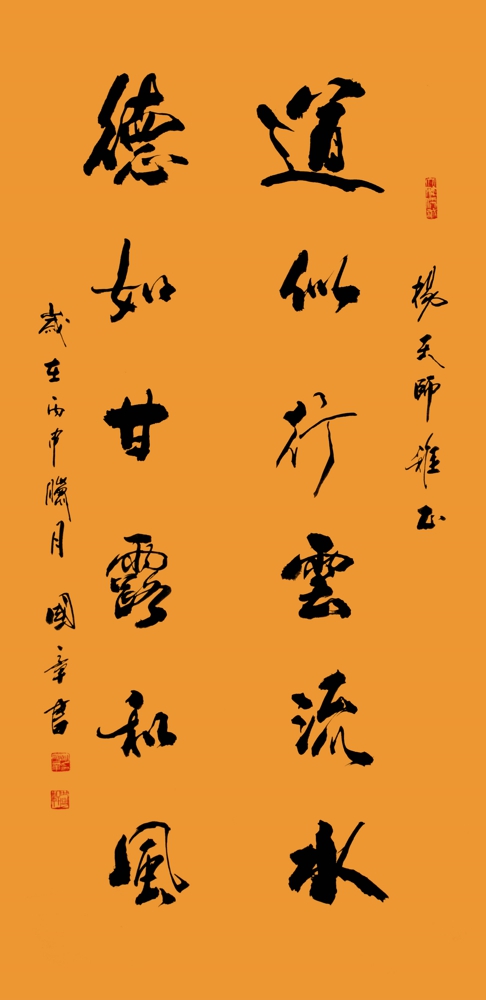 楊天師雅正
道似行雲流水
德如甘露和風
歲在丙申臘月 國章書